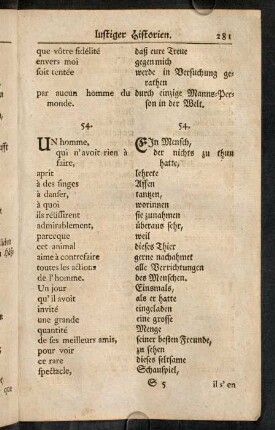 lustiger Historien. 281
que vôtre fidélité daß eure Treue
envers moi gegen mich
soit tentée werde in Versuchung ge-
rathen
par aucun homme du durch einzige Manns-Per-
monde. son in der Welt.
54. 54.
UN homme, EIn Mensch,
qui n'avoit rien à der nichts zu thun
faire, hatte,
aprit lehrete
à des singes Affen
à danser, tantzen,
à quoi worinnen
ils réüssirent sie zunahmen
admirablement, überaus sehr,
parceque weil
cet animal dieses Thier
aime à contrefaire gerne nachahmet
toutes les actions alle Verrichtungen
de l'homme. des Menschen.
Un jour Einsmals,
qu'il avoit als er hatte
invité eingeladen
une grande eine grosse
quantité Menge
de ses meilleurs amis, seiner besten Freunde,
pour voir zu sehen
ce rare dieses seltsame
spectacle, Schauspiel,
S 5 il s'en